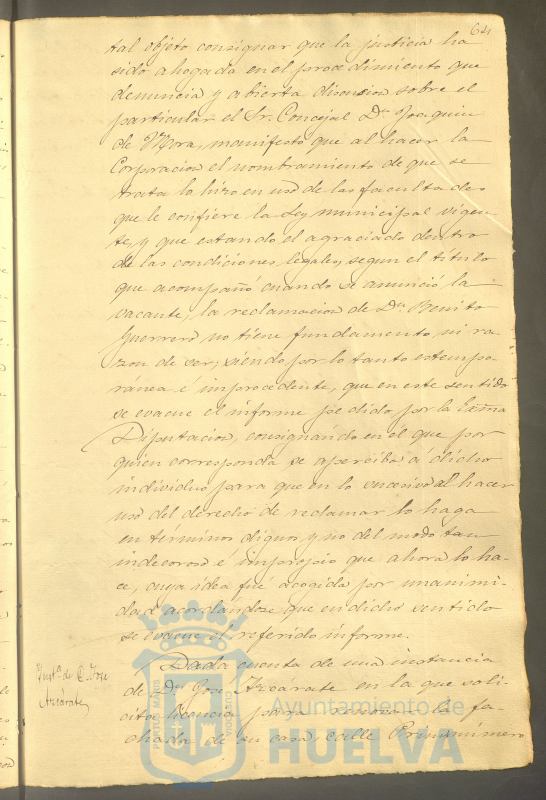 64
tal objeto consignar que la justicia ha
sido ahogada en el procedimiento que
denuncia y abierta discusion sobre el
particular el Sr. Concejal Dn Joaquin
de Mora, manifestó que al hacer la
Corporacion el nombramiento de que se
trata lo hizo en uso de las facultades
que le confiere la Ley municipal vigen
te, y que estando el agraciado dentro
de las condiciones legales, segun el titulo
que acompañó cuando se anunció la
vacante, la reclamacion de Dn Benito
Guerrero no tiene fundamento ni ra
zon de ser, siendo por lo tanto estempo
ránea é improcedente, que en este sentido
se evacue el informe pedido por la Exma
Diputacion, consignando en él que por
quien corresponda se aperciba á dicho
individuo para que en lo sucesivo al hacer
uso del derecho de reclamar lo haga
en términos dignos y no del modo tan
indecoroso é impropio que ahora lo ha-
ce, cuya idea fué acogida por unanimi-
dad acordandose que en dicho sentido
se evacue el referido informe.
Inst.ª de D. Jose
Azcárate
Dada cuenta de una instancia
de Dn Jose Azcárate en la que soli
cita licencia para la fa
chada de su casa calle Prim número
PORTUS MARIS
CUSTODIA
Ayuntamiento de
HUELVA